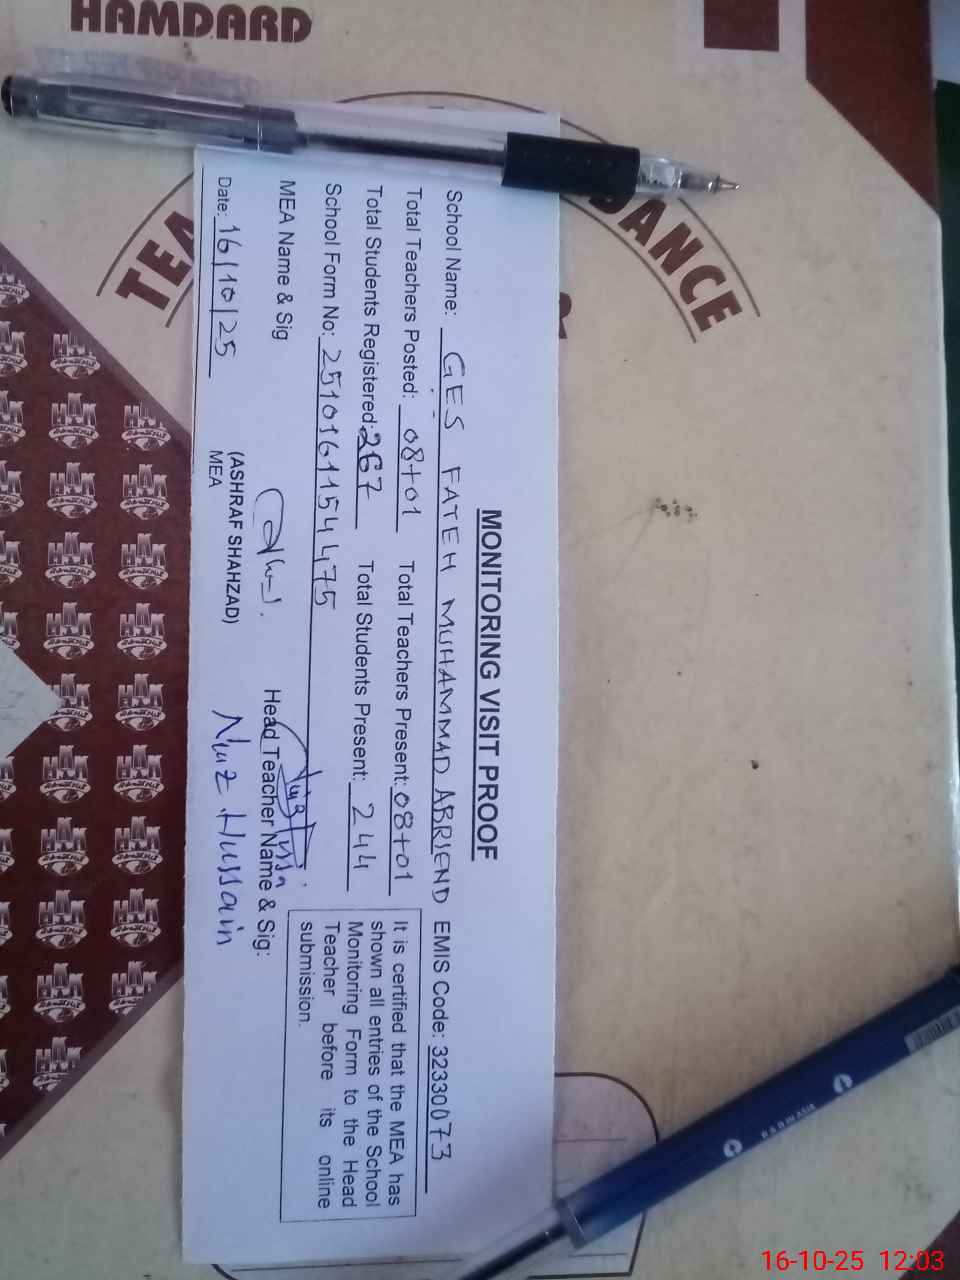 HAMDARD
TEA
DANCE
&
MONITORING VISIT PROOF
School Name: GES FATEH MUHAMMAD ABRIEND EMIS Code: 32330073
Total Teachers Posted: 08+01 Total Teachers Present: 08+01
Total Students Registered: 267 Total Students Present: 244
School Form No: 2510161154475
It is certified that the MEA has
shown all entries of the School
Monitoring Form to the Head
Teacher before its online
submission.
MEA Name & Sig
Head Teacher Name & Sig:
(ASHRAF SHAHZAD)
MEA
Hussain
Date: 16/10/25
16-10-25 12:03